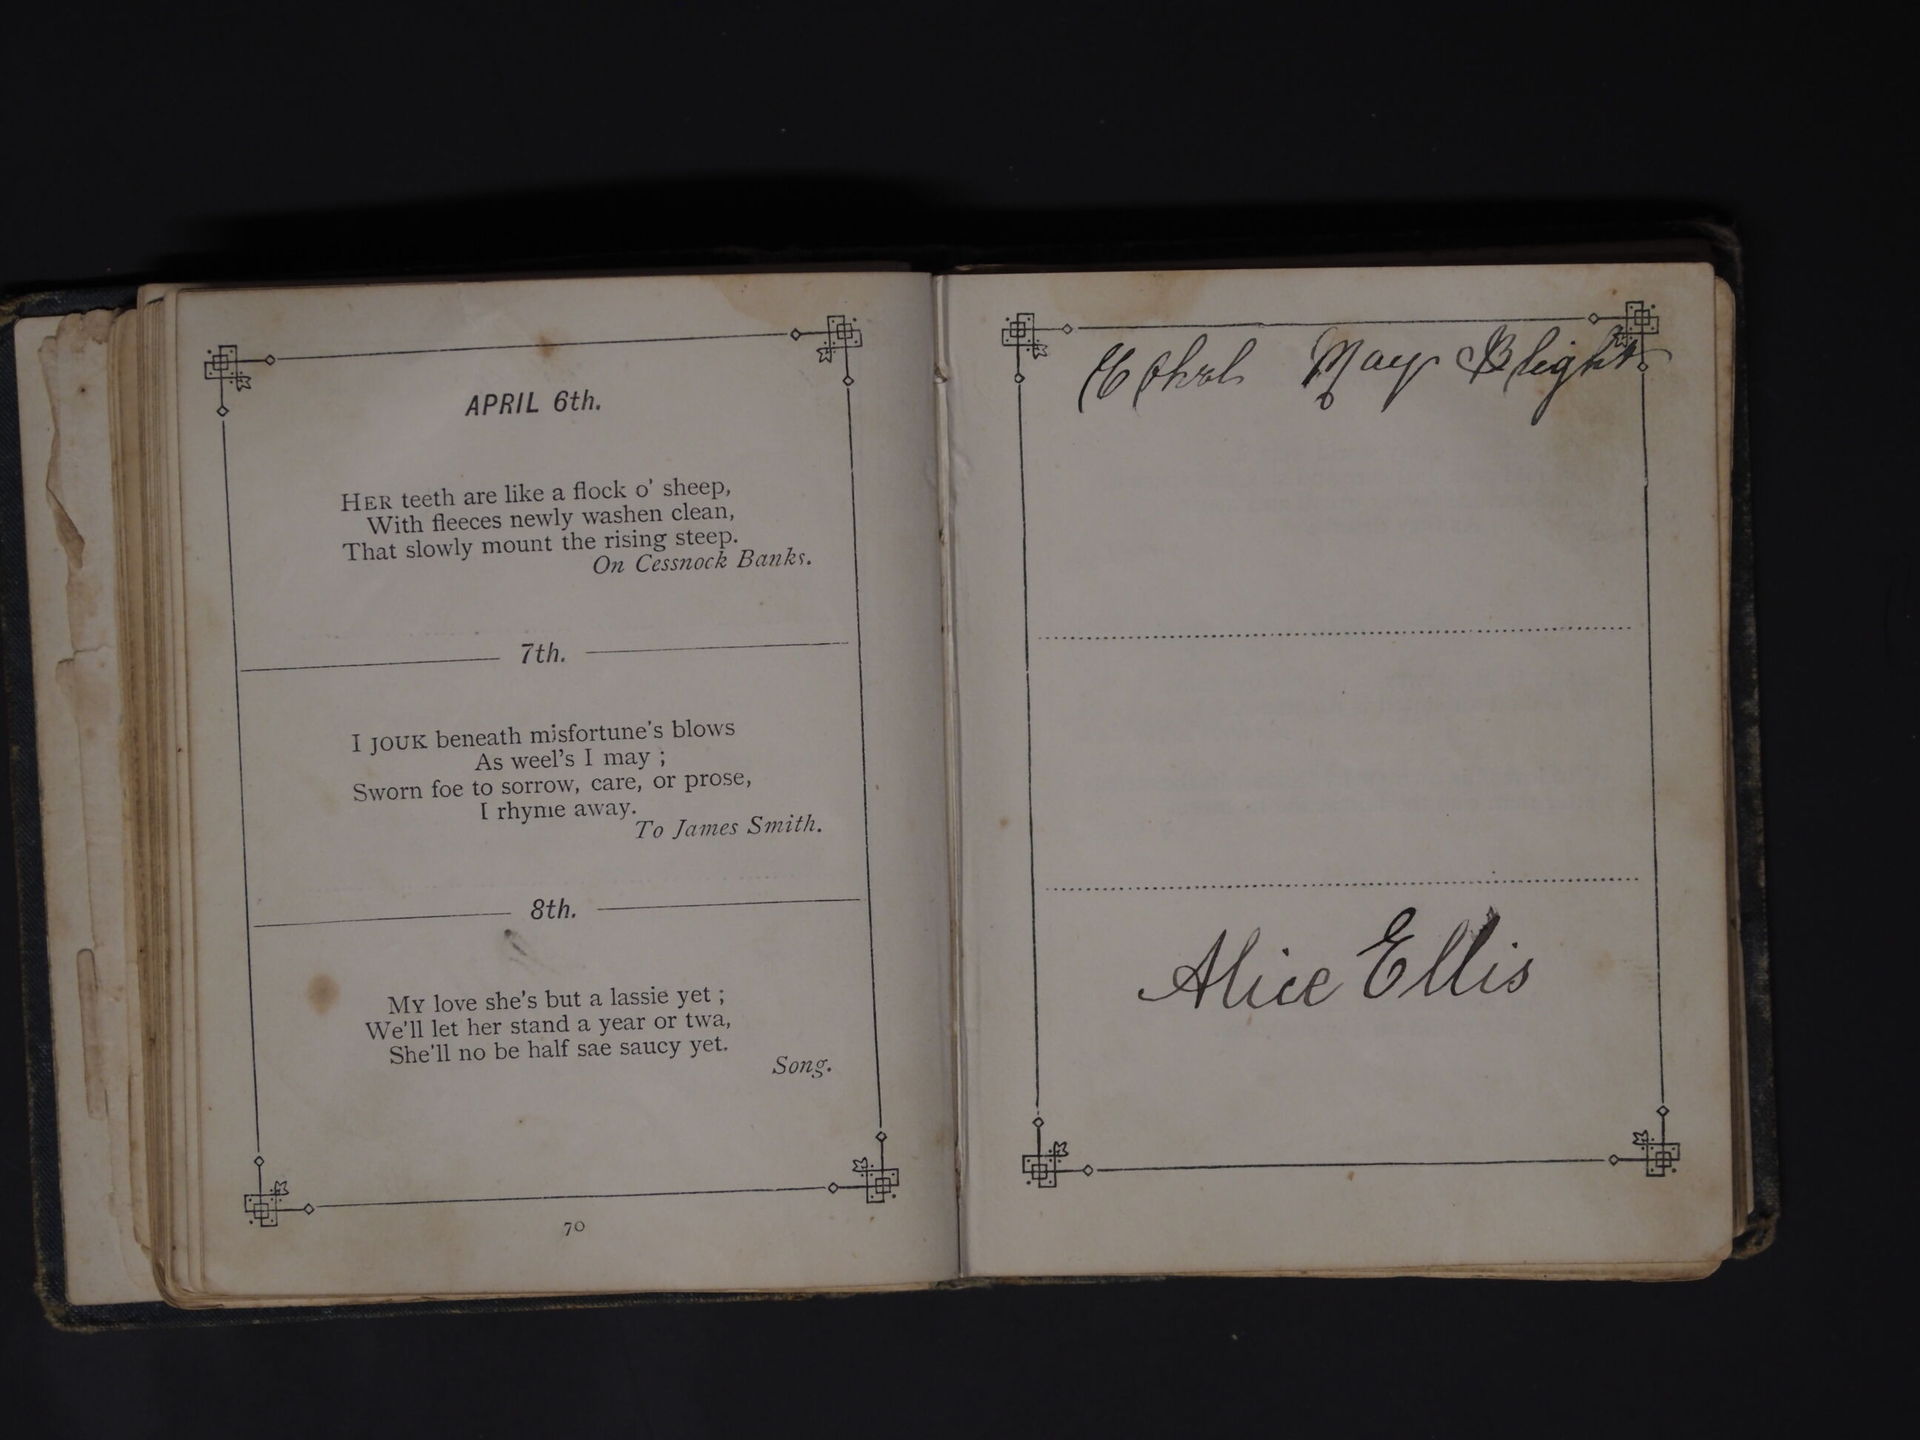 APRIL 6th.
HER teeth are like a flock o' sheep,
With fleeces newly washen clean,
That slowly mount the rising steep.
On Cessnock Banks.
7th.
I JOUK beneath misfortune's blows
As weel's I may ;
Sworn foe to sorrow, care, or prose,
I rhyme away.
To James Smith.
8th.
MY love she's but a lassie yet ;
We'll let her stand a year or twa,
She'll no be half sae saucy yet.
Song.
70
May Blight
Alice Ellis